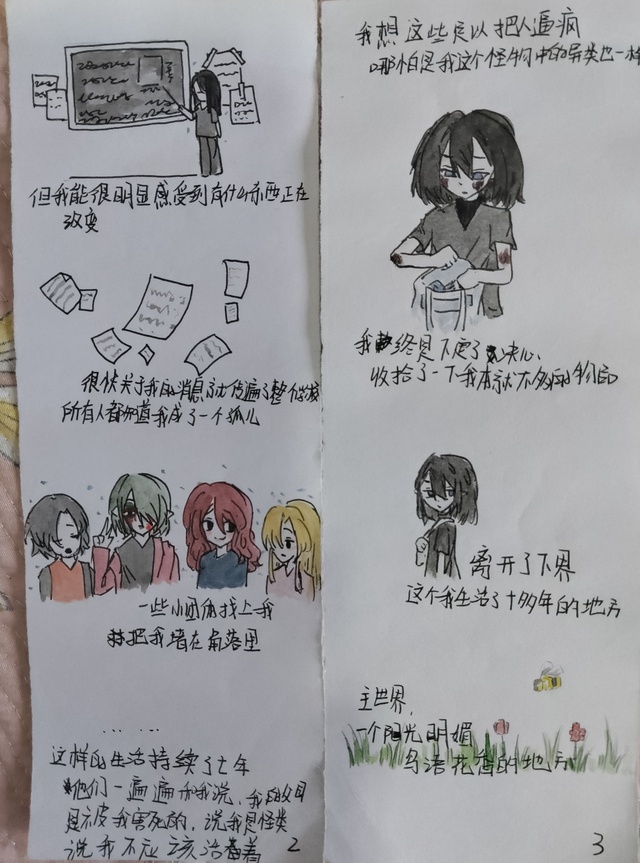 但我能很明显感受到有什么东西正在
改变
很快关于我的消息就传遍了整个学校
所有人都知道我成了一个孤儿
一些小团伙找上我
把我堵在角落里
... ...
这样的生活持续了七年
他们一遍遍和我说，我的父母
是被我害死的，说我是怪类
说我不应该活着
2
我想这些足以把人逼疯
哪怕是我这个怪物中的异类也一样
我终是下定了决心
收拾了一下我本就不多的物品
离开了下界
这个我生活了十多年的地方
主世界，
一个阳光明媚
鸟语花香的地方
3